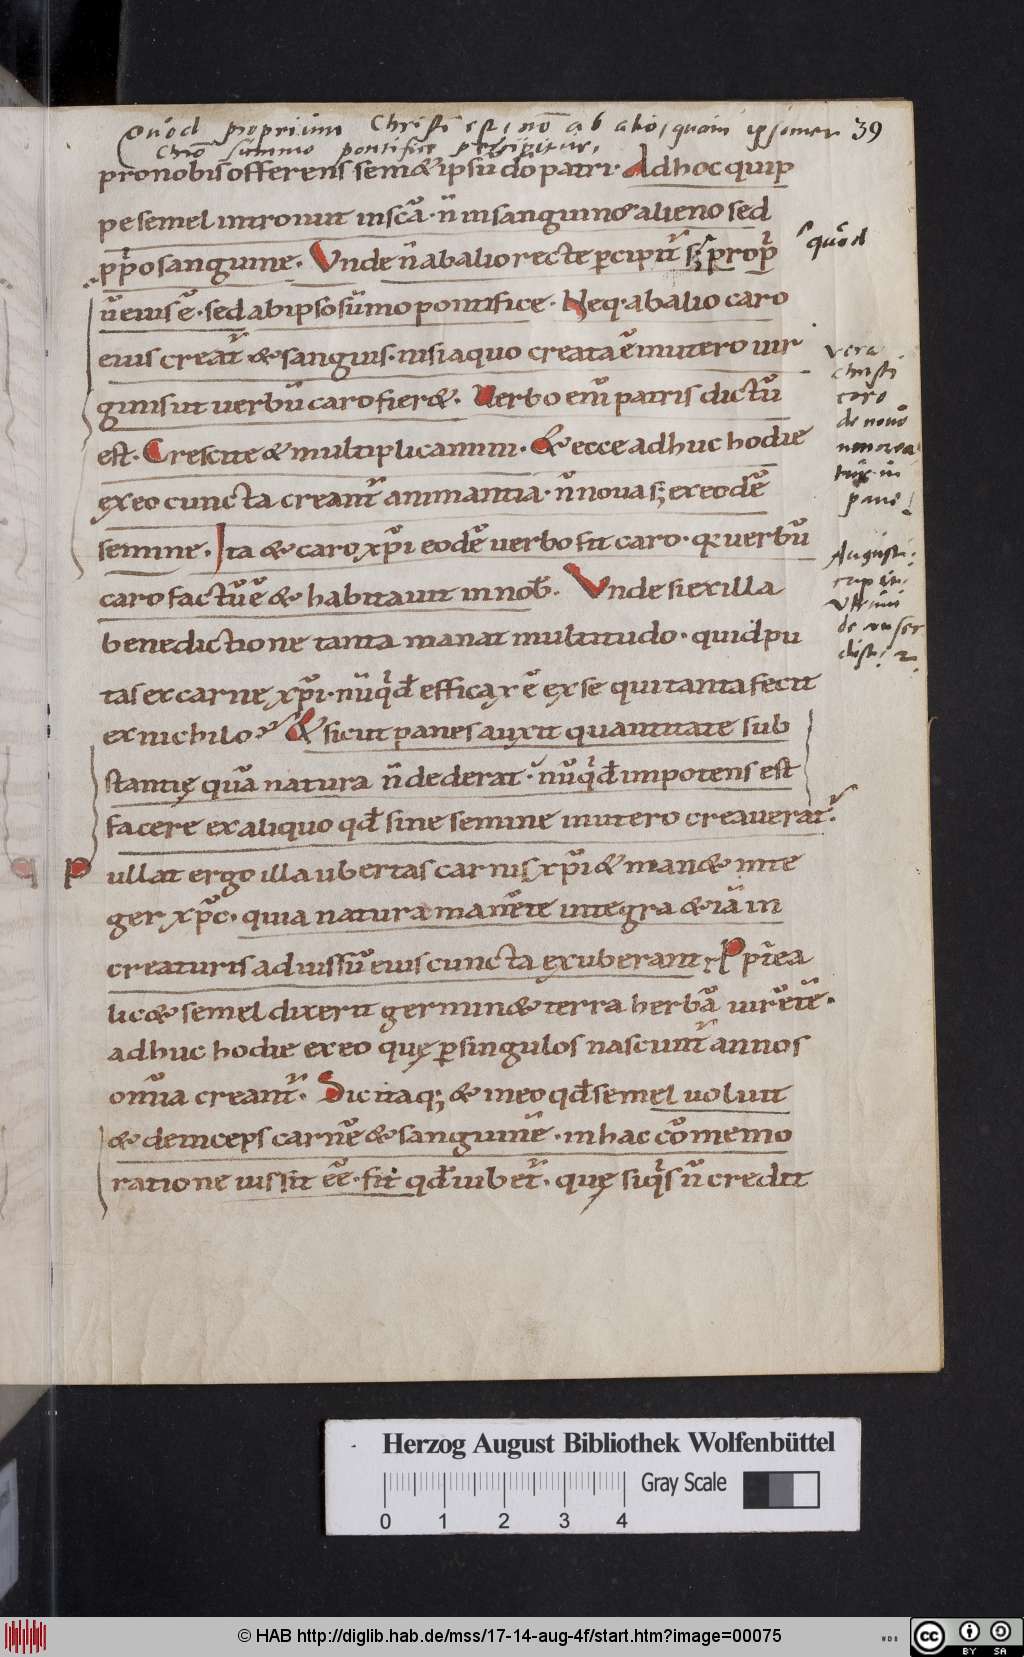 Quod proprium Christi est, nō ab alio, quam ipsomet 39
Chrō summo pontifice percipitur,
pro nobis offerens sem& ipsū dō patri. Ad hoc quip
pe semel introiuit in scā. n̄ in sanguine alieno sed
pp̄o sanguine. Vnde n̄ ab alio recte ꝑcipit̄ sꝫ prop̄
quod
ū eius ē. sed ab ipso sūmo pontifice. Neq; ab alio caro
eius creat̄ & sanguis. nisi a quo creata ē in utero uir
ginis ut uerbū caro fier&. Verbo eni patris dictū
est. Crescite & multiplicamini. & ecce adhuc hodie
ex eo cuncta creant̄ animantia. n̄ noua sꝫ ex eodē
semine. Ita & caro xp̄i eodē uerbo fit caro. q uerbū
caro factū ē & habitauit in nob̄. Vnde si ex illa
benedictione tanta manat multitudo. quid pu
tas ex carne xp̄i. nūqd̄ efficax ē ex se qui tanta fecit
ex nichilo? & sicut panes auxit quantitate sub
stantię quā natura n̄ dederat. nūqd̄ impotens est
facere ex aliquo qd̄ sine semine in utero creauerat?
Pullat ergo illa ubertas carnis xp̄i & man& inte
ger xp̄c. quia natura manēte integra & iā in
creaturis ad iussū eius cuncta exuberant. Ppīea
lic& semel dixerit germin& terra herbā uirētē.
adhuc hodie ex eo quę ꝑ singulos nascunt̄ annos
om̄ia creant̄. Sic itaq; & in eo qd̄ semel uoluit
& deinceps carnē & sanguinē. in hac cōmemo
ratione iussit eē. fit qd̄ iubet̄. quę siqs n̄ credit
vera
Christi
caro
de nouo
non crea
tur in
pane
Augusti:
dist: 2.
Herzog August Bibliothek Wolfenbüttel
Gray Scale
0 1 2 3 4
© HAB http://diglib.hab.de/mss/17-14-aug-4f/start.htm?image=00075
WDB
cc BY SA